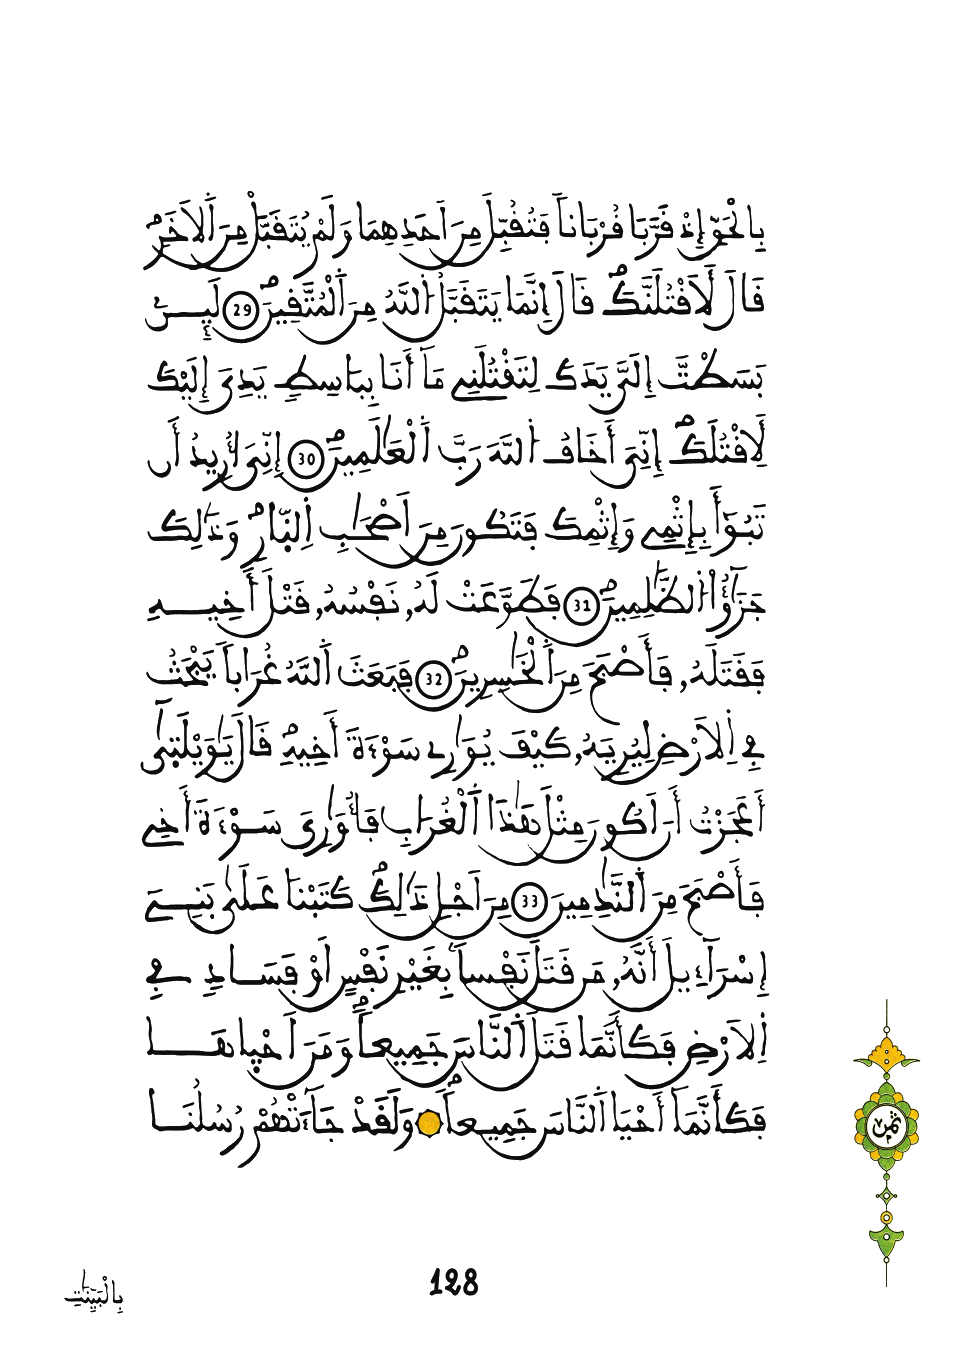 بِالْحَقِّ إِذْ قَرَّبَا قُرْبَاناً فَتُقُبِّلَ مِنَ اَحَدِهِمَا وَلَمْ يُتَقَبَّلْ مِنَ اَلَاخَرِ
قَالَ لَأَقْتُلَنَّكَ قَالَ إِنَّمَا يَتَقَبَّلُ اُللَّهُ مِنَ اَلْمُتَّقِينَ 29 لَئِنۢ
بَسَطتَّ إِلَيَّ يَدَكَ لِتَقْتُلَنِے مَآ أَنَا بِبَاسِطٖ يَدِيَ إِلَيْكَ
لَأَقْتُلَكَ إِنِّيَ أَخَافُ اُللَّهَ رَبَّ اَلْعَٰلَمِينَ 30 إِنِّيَ أُرِيدُ أَن
تَبُوٓأَ بِإِثْمِے وَإِثْمِكَ فَتَكُونَ مِنَ اَصْحَٰبِ اِلنّ۪ارِ وَذَٰلِكَ
جَزَٰٓؤُاْ اُلظَّٰلِمِينَ 31 فَطَوَّعَتْ لَهُۥ نَفْسُهُۥ قَتْلَ أَخِيهِ
فَقَتَلَهُۥ فَأَصْبَحَ مِنَ اَلْخَٰسِرِينَ 32 فَبَعَثَ اَللَّهُ غُرَاباً يَبْحَثُ
فِے اِلَارْضِ لِيُرِيَهُۥ كَيْفَ يُوَٰرِے سَوْءَةَ أَخِيهِ قَالَ يَٰوَيْلَتِىٰٓ
أَعَجَزْتُ أَنَ اَكُونَ مِثْلَ هَٰذَا اَلْغُرَابِ فَأُوَٰرِيَ سَوْءَةَ أَخِے
فَأَصْبَحَ مِنَ اَلنَّٰدِمِينَ 33 مِنَ اَجْلِ ذَٰلِكَ كَتَبْنَا عَلَىٰ بَنِےٓ
إِسْرَآءِيلَ أَنَّهُۥ مَن قَتَلَ نَفْساَۢ بِغَيْرِ نَفْسٍ اَوْ فَسَادٖ فِے
اِلَارْضِ فَكَأَنَّمَا قَتَلَ اَلنَّاسَ جَمِيعاً وَمَنَ اَحْي۪اهَا
فَكَأَنَّمَآ أَحْيَا اَلنَّاسَ جَمِيعاً وَلَقَدْ جَآءَتْهُمْ رُسُلُنَا
ثمن
128
بِالْبَيِّنَٰتِ